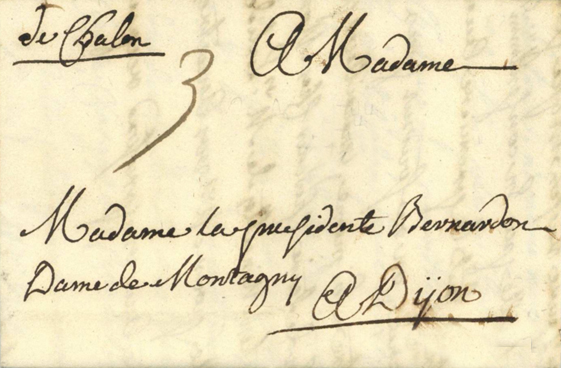 de Chalon
3
A Madame
Madame la presidente Bernardon
Dame de Montagny
A Dijon